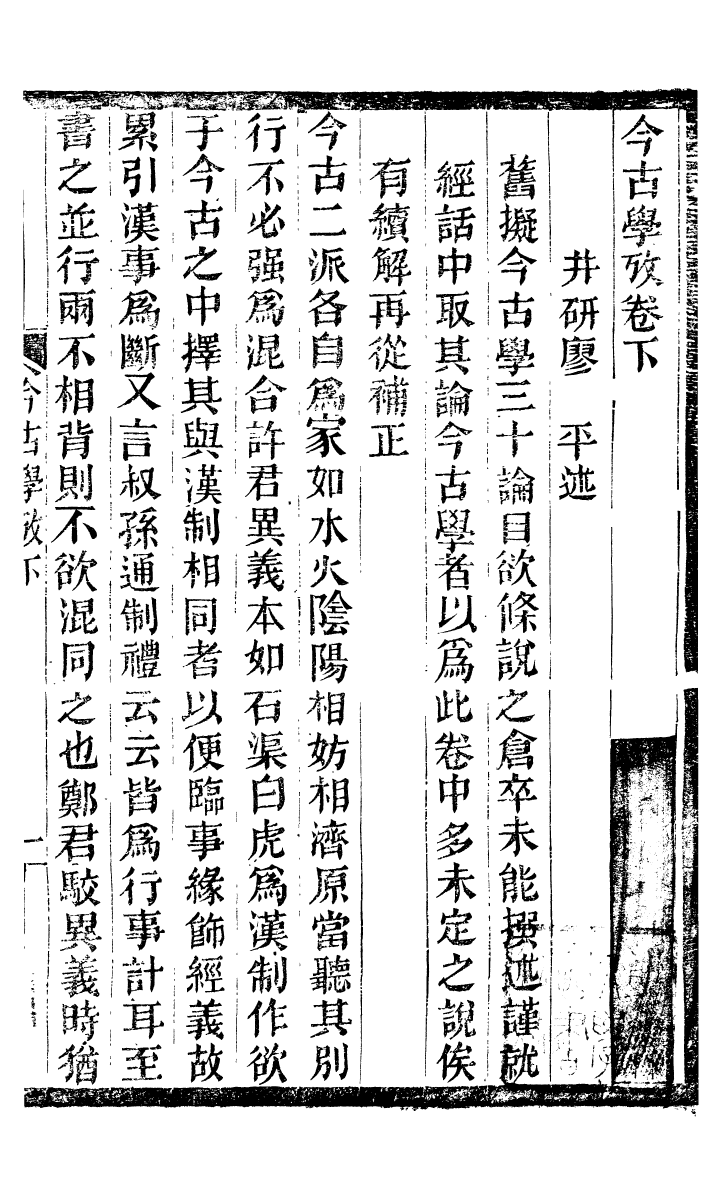 今古學攷卷下
井研廖　平述
舊擬今古學三十論目欲條說之倉卒未能撰述謹就
經話中取其論今古學者以爲此卷中多未定之說俟
有續解再從補正
今古二派各自爲家如水火陰陽相妨相濟原當聽其別
行不必强爲混合許君異義本如石渠白虎爲漢制作欲
于今古之中擇其與漢制相同者以便臨事緣飾經義故
累引漢事爲斷又言叔孫通制禮云云皆爲行事計耳至
書之並行兩不相背則不欲混同之也鄭君駮異義時猶
今古學攷下
一